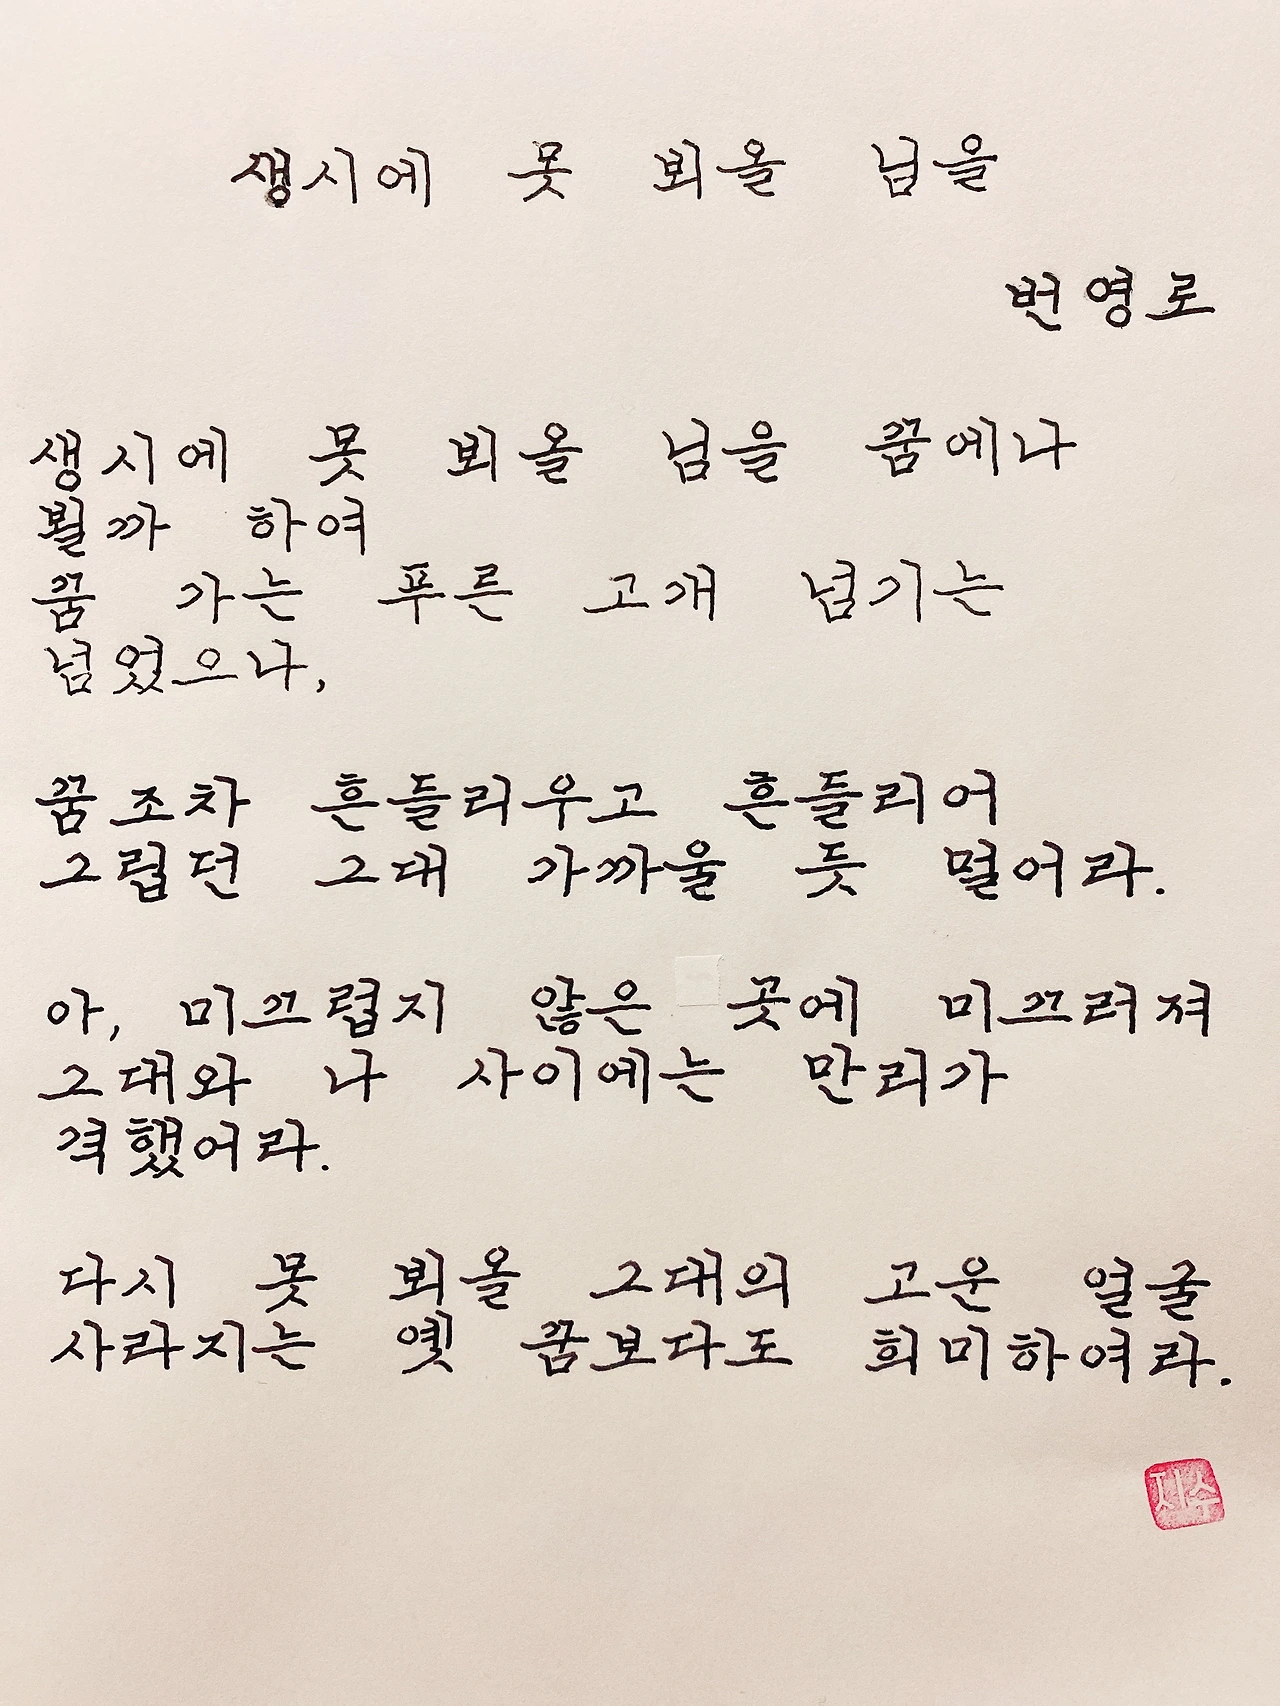 생시에 못 뵈올 님을
번영로
생시에 못 뵈올 님을 꿈에나
뵐까 하여
꿈 가는 푸른 고개 넘기는
넘었으나,
꿈조차 흔들리우고 흔들리어
그립던 그대 가까울 듯 멀어라.
아, 미끄럽지 않은 곳에 미끄러져
그대와 나 사이에는 만리가
격했어라.
다시 못 뵈올 그대의 고운 얼굴
사라지는 옛 꿈보다도 희미하여라.
지수